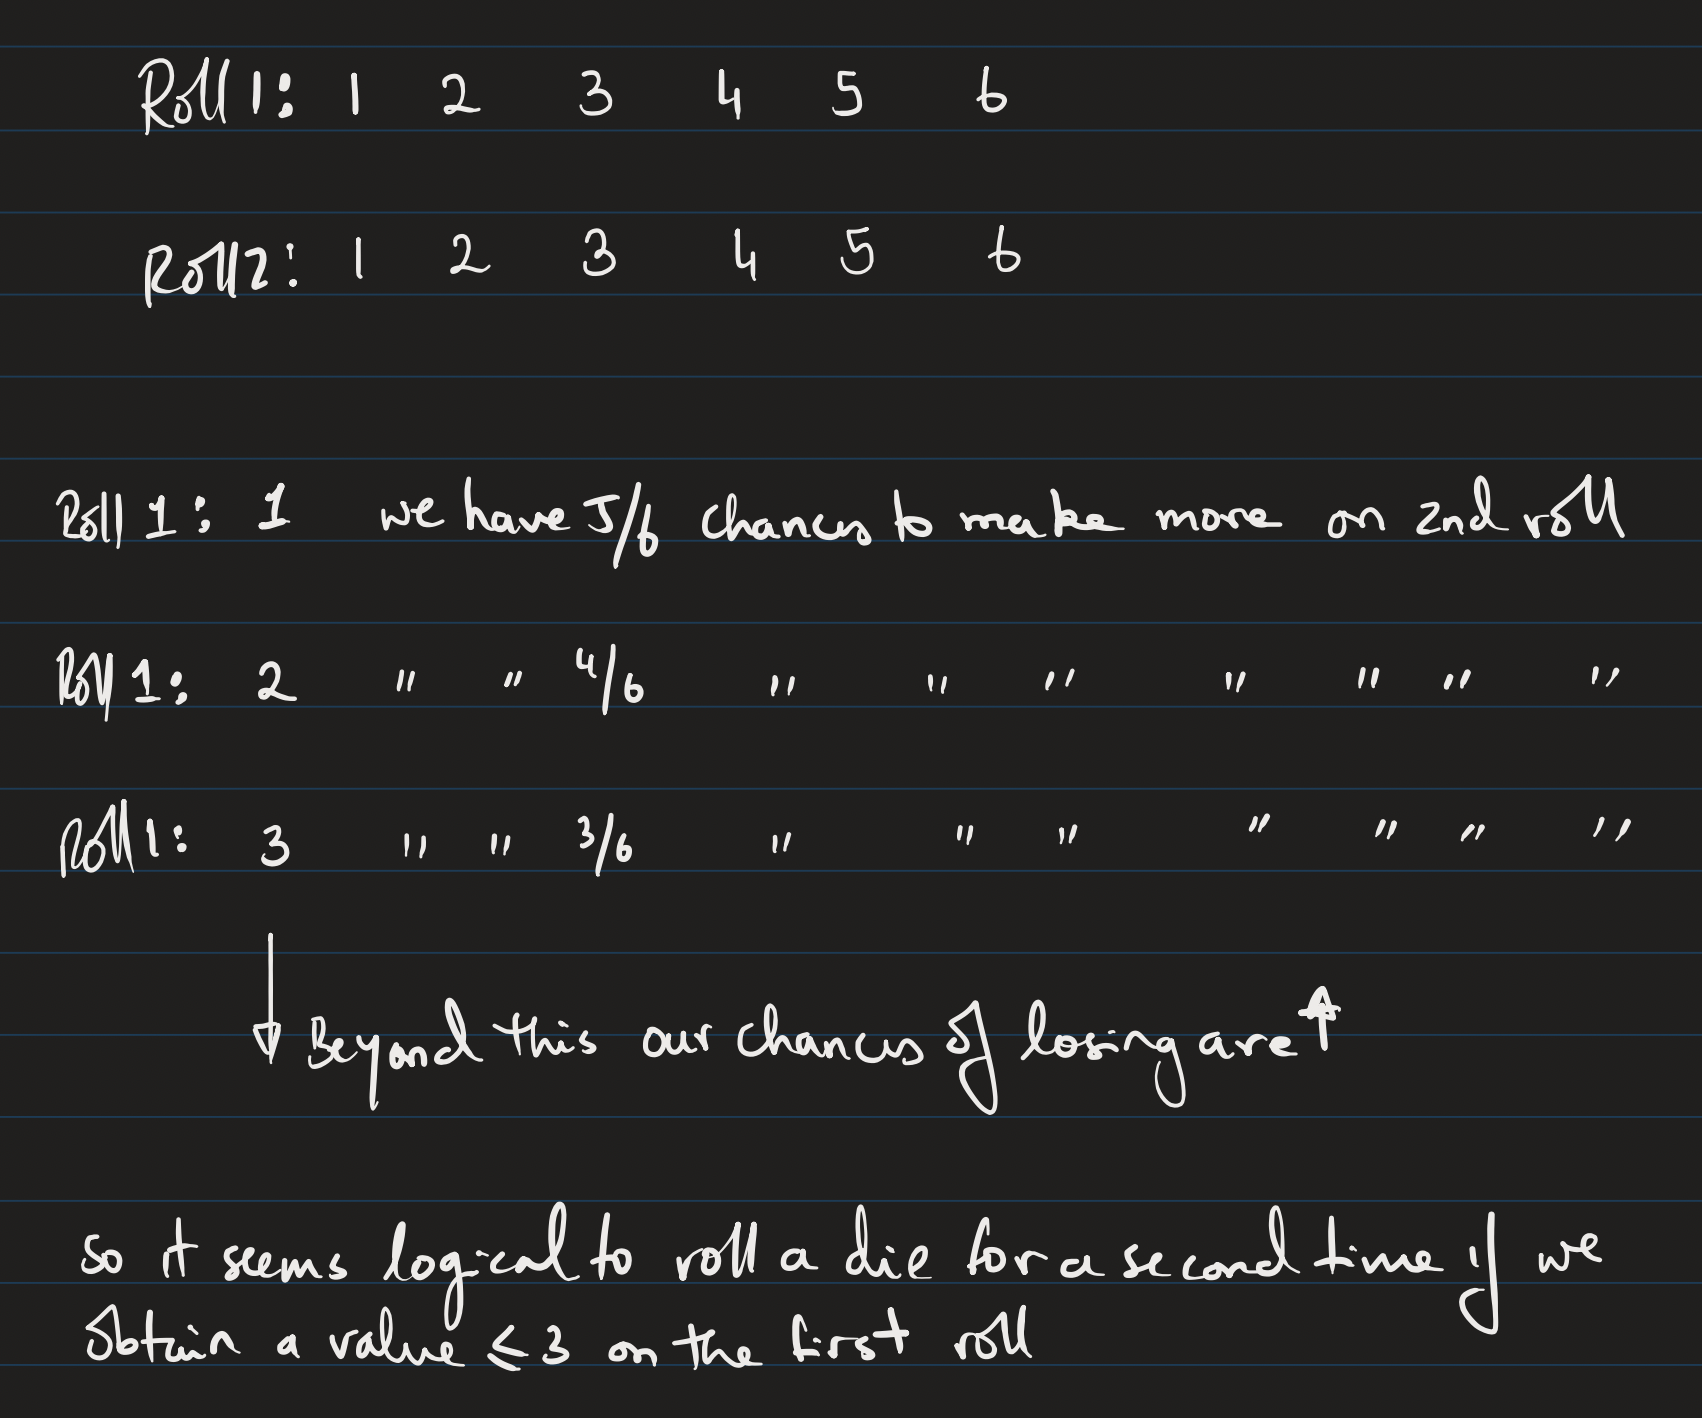 Roll 1: 1 2 3 4 5 6
Roll 2: 1 2 3 4 5 6
Roll 1: 1 we have 5/6 chances to make more on 2nd roll
Roll 1: 2 " " 4/6 " " " " " " "
Roll 1: 3 " " 3/6 " " " " " " "
↓ Beyond this our chances of losing are ↑
so it seems logical to roll a die for a second time if we
obtain a value ≤ 3 on the first roll